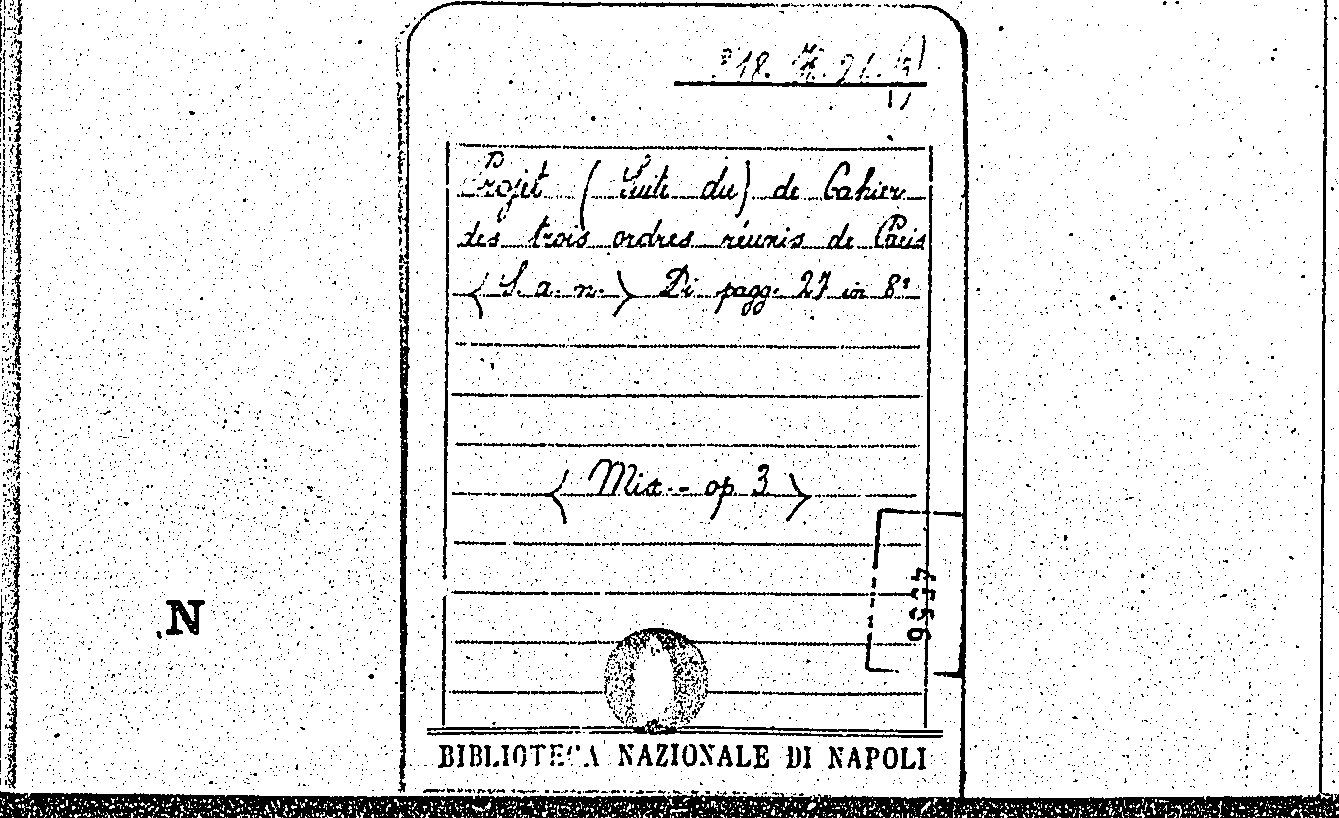 Projet ( Suite du) de Cahier
des trois ordres réunis de Paris
( S. a. n. ) Di pagg. 27 in 8º
( Misc. - op 3 )
N
BIBLIOTECA NAZIONALE DI NAPOLI